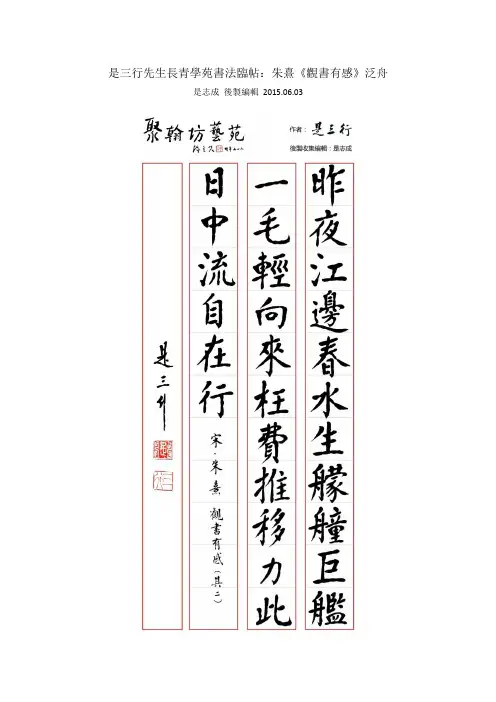 是三行先生長青學苑書法臨帖：朱熹《觀書有感》泛舟
是志成 後製編輯 2015.06.03
聚翰坊藝苑
作者：是三行
後製收集編輯：是志成
昨夜江邊春水生艨艟巨艦
一毛輕向來枉費推移力此
日中流自在行
宋·朱熹 觀書有感(其二)
是三行